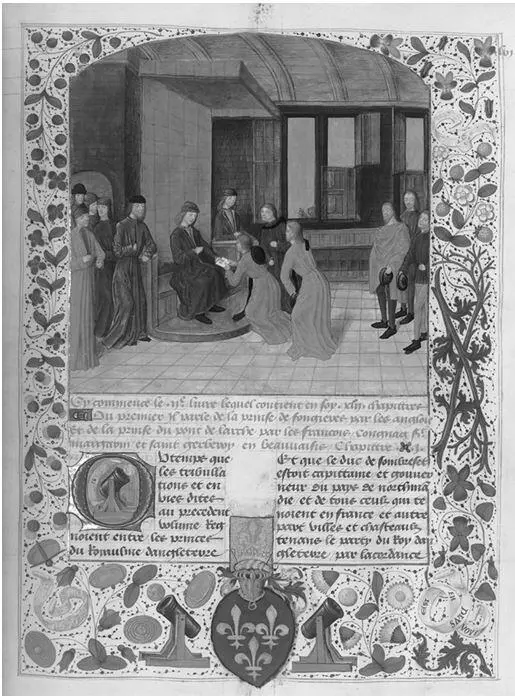 Cy commence le .vjᵉ. livre lequel contient en soy .xlij. chapittres
Du premier Il parle de la prinse de fougieres par les anglois
Et de la prinse du pont de larche par les francois, congnac sᵗ
margarin et saint gerberoy en beauvaisis Chapittre
Ou temps que
les tribula
tions et en
vies dites
au precedent
volume reg
noient entre les princes
du Royaulme dangleterre
Et que le duc de sombreset
estoit capittaine et gouver
neur du pays de northma
die et de tous ceulx qui te
noient en france et autre
part villes et chasteaulx
tenans le party du Roy dan
gleterre, par lacordance